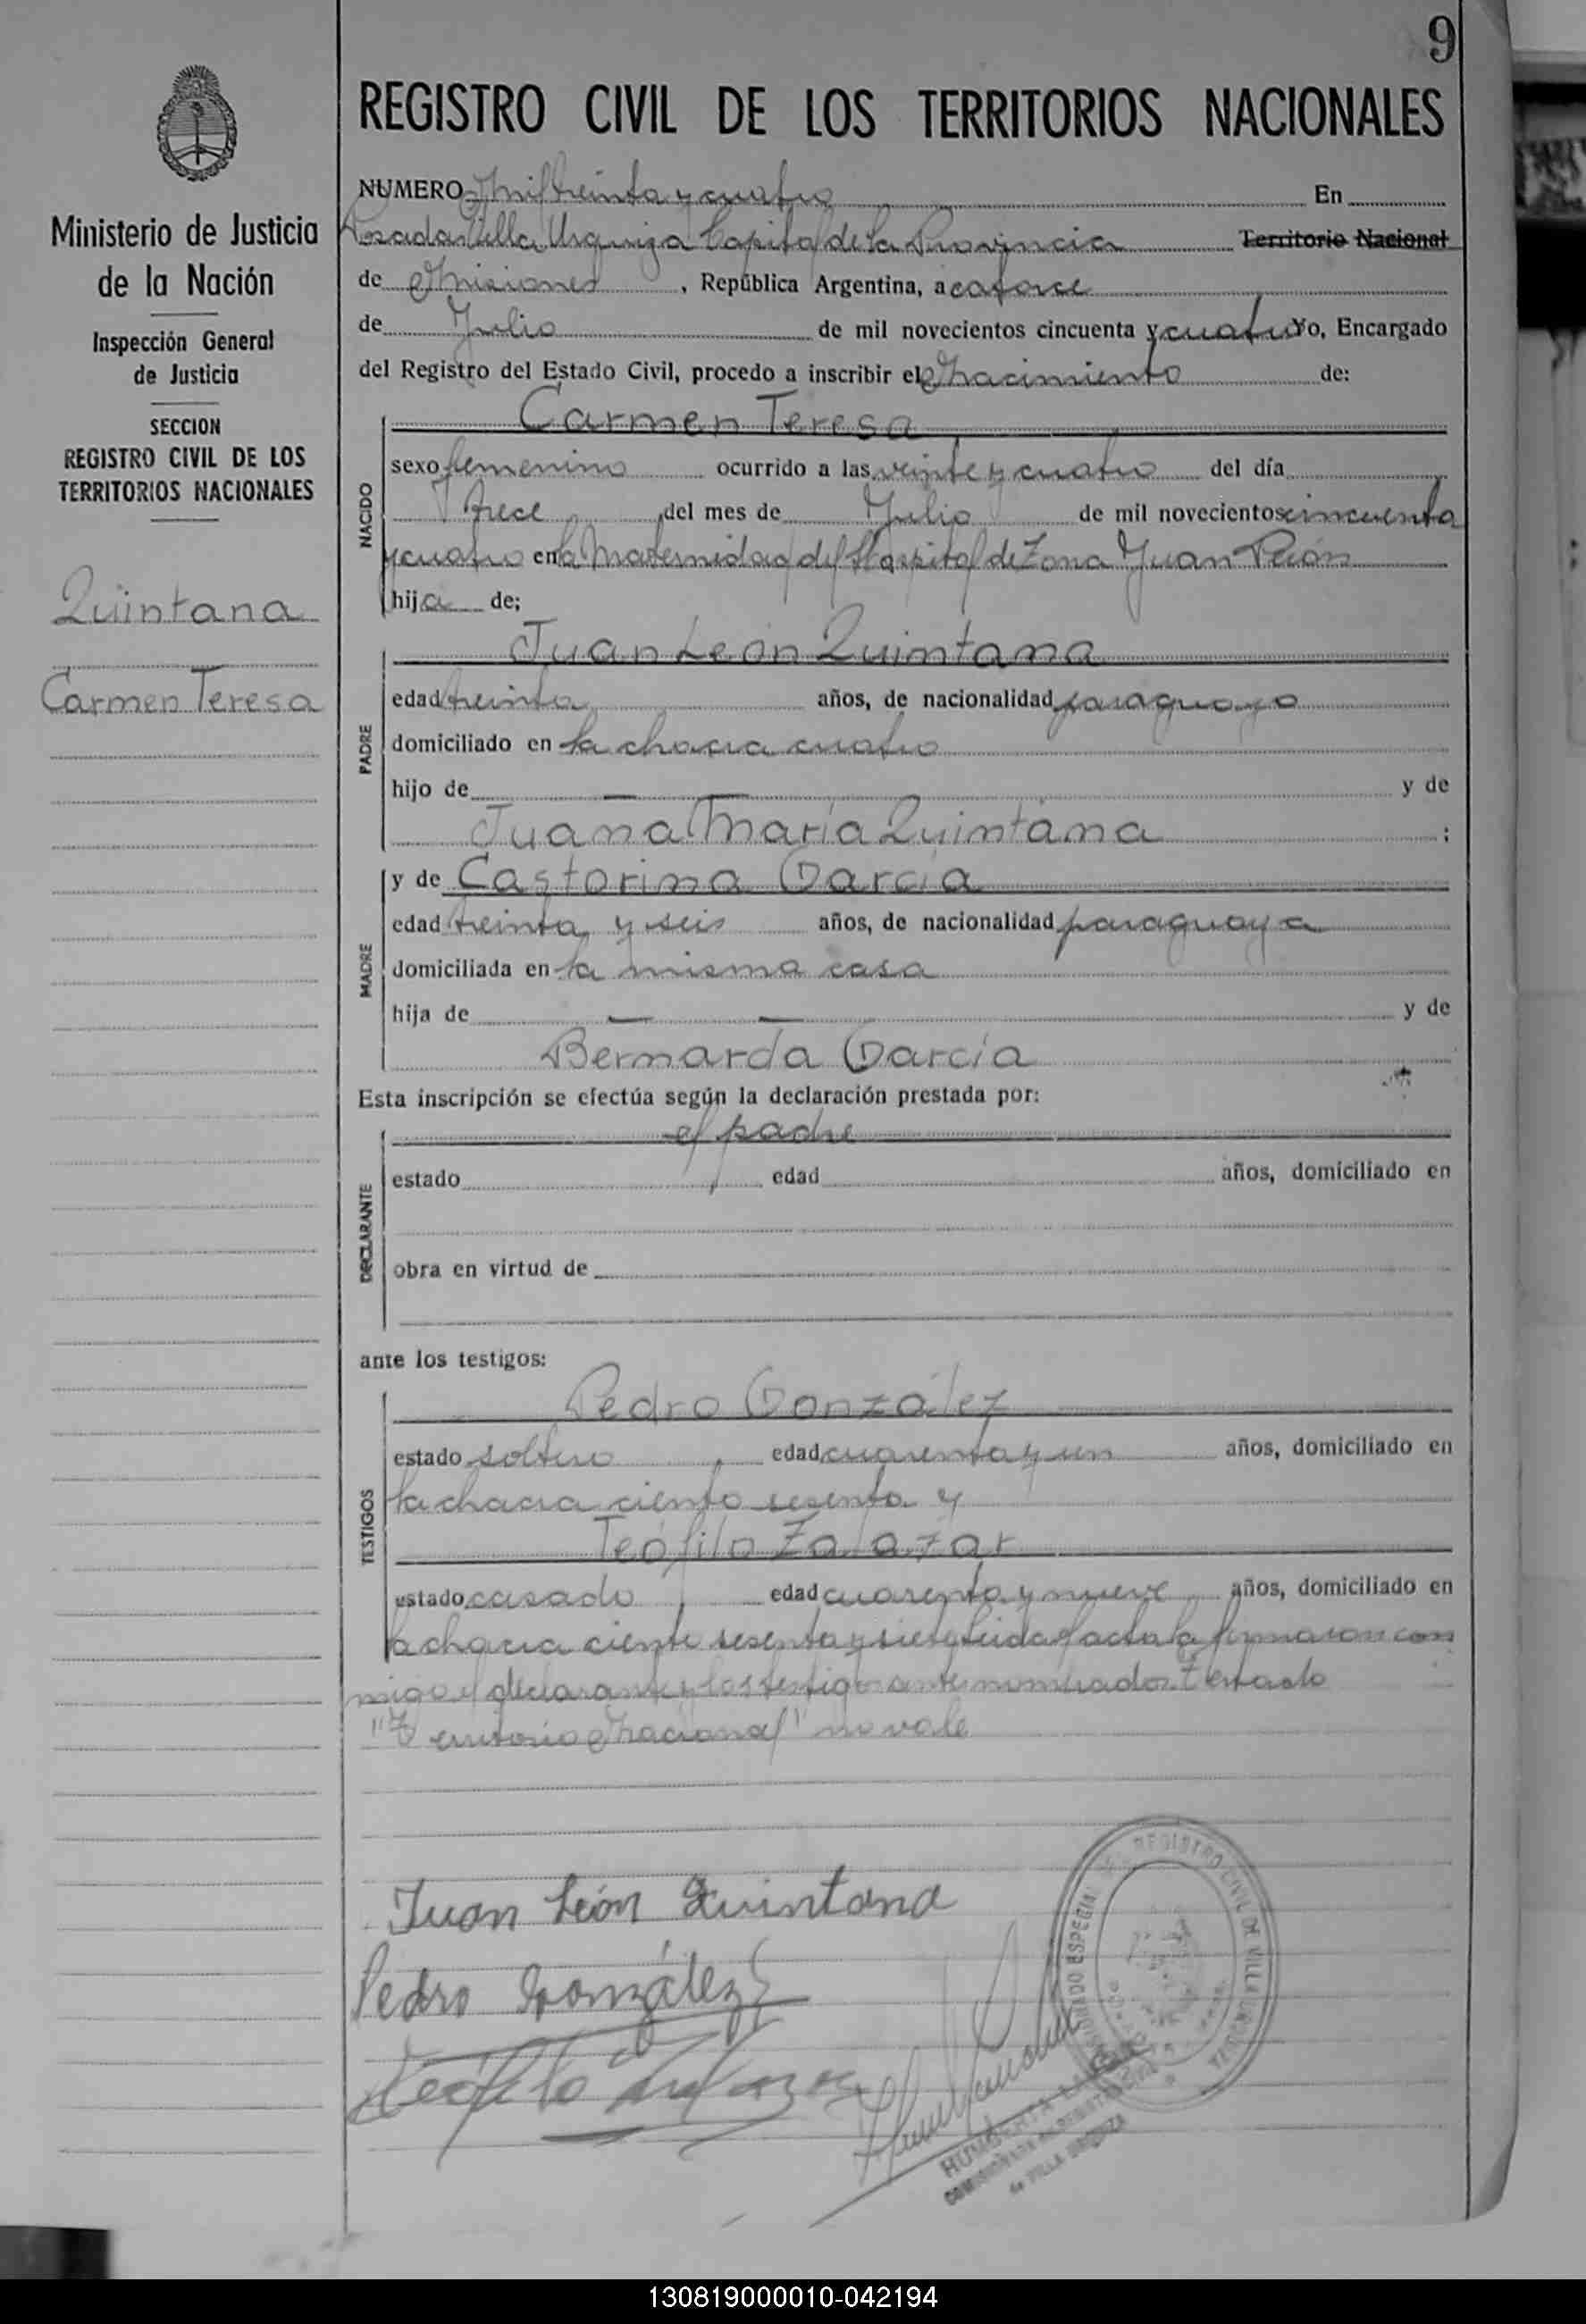 9
REGISTRO CIVIL DE LOS TERRITORIOS NACIONALES
Ministerio de Justicia
de la Nación
Inspección General
de Justicia
SECCION
REGISTRO CIVIL DE LOS
TERRITORIOS NACIONALES
Quintana
Carmen Teresa
NUMERO Mil treinta y cuatro En
Posadas Villa Urquiza Capital de la Provincia Territorio Nacional
de Misiones, República Argentina, a catorce
de Julio de mil novecientos cincuenta y cuatro Yo, Encargado
del Registro del Estado Civil, procedo a inscribir el Nacimiento de:
NACIDO
Carmen Teresa
sexo femenino ocurrido a las veinte y cuatro del día
trece del mes de Julio de mil novecientos cincuenta
y cuatro en la Maternidad del Hospital de Zona Juan Perón
hija de;
PADRE
Juan León Quintana
edad treinta años, de nacionalidad paraguayo
domiciliado en la chacra cuatro
hijo de — — y de
Juana María Quintana ;
MADRE
y de Castorina García
edad treinta y seis años, de nacionalidad paraguaya
domiciliada en la misma casa
hija de — — y de
Bernarda García
Esta inscripción se efectúa según la declaración prestada por:
DECLARANTE
el padre
estado , edad años, domiciliado en
obra en virtud de
ante los testigos:
TESTIGOS
Pedro González
estado soltero , edad cuarenta y un años, domiciliado en
la chacra ciento sesenta y
Teófilo Zalazar
estado casado , edad cuarenta y nueve años, domiciliado en
la chacra ciento sesenta y siete leida el acta la firmaron con
migo el declarante y los testigos antes nombrados Testado
"Territorio Nacional" no vale
Juan León Quintana
Pedro González
Teófilo Zalazar
REGISTRO CIVIL DE VILLA URQUIZA
ESPECIAL
de VILLA URQUIZA
130819000010-042194